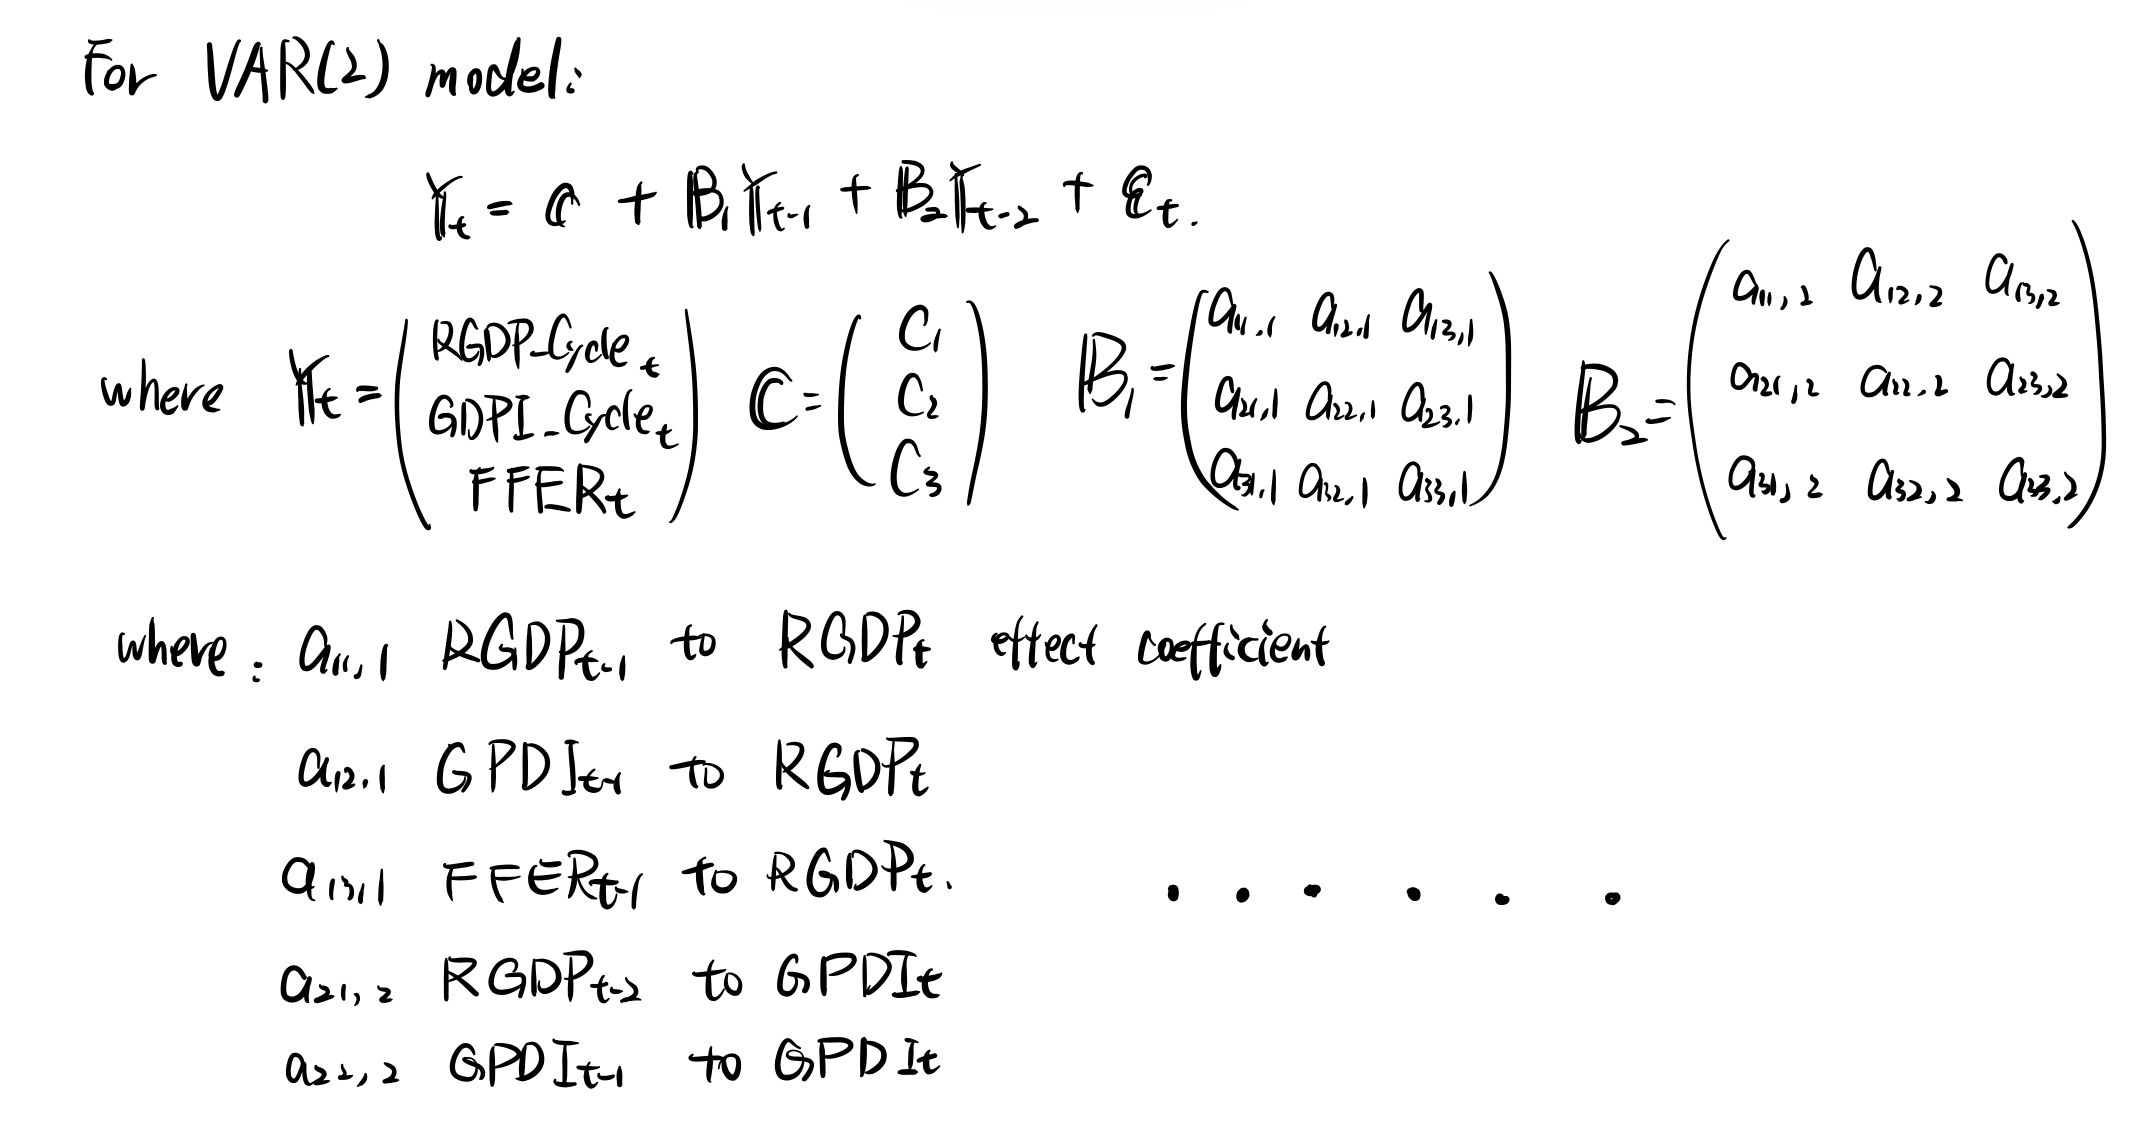 For VAR(2) model:
𝕐t = ℂ + 𝔹1 𝕐t-1 + 𝔹2 𝕐t-2 + 𝕖t.
where 𝕐t = (RGDP_Cycle t GDPI_Cycle t FFER t) ℂ = (C1 C2 C3) 𝔹1 = (a11,1 a12,1 a13,1 a21,1 a22,1 a23,1 a31,1 a32,1 a33,1) 𝔹2 = (a11,2 a12,2 a13,2 a21,2 a22,2 a23,2 a31,2 a32,2 a33,2)
where: a11,1 RGDPt-1 to RGDPt effect coefficient
a12,1 GPDIt-1 to RGDPt
a13,1 FFERt-1 to RGDPt. . . . . . .
a21,2 RGDPt-2 to GPDIt
a22,2 GPDIt-1 to GPDIt